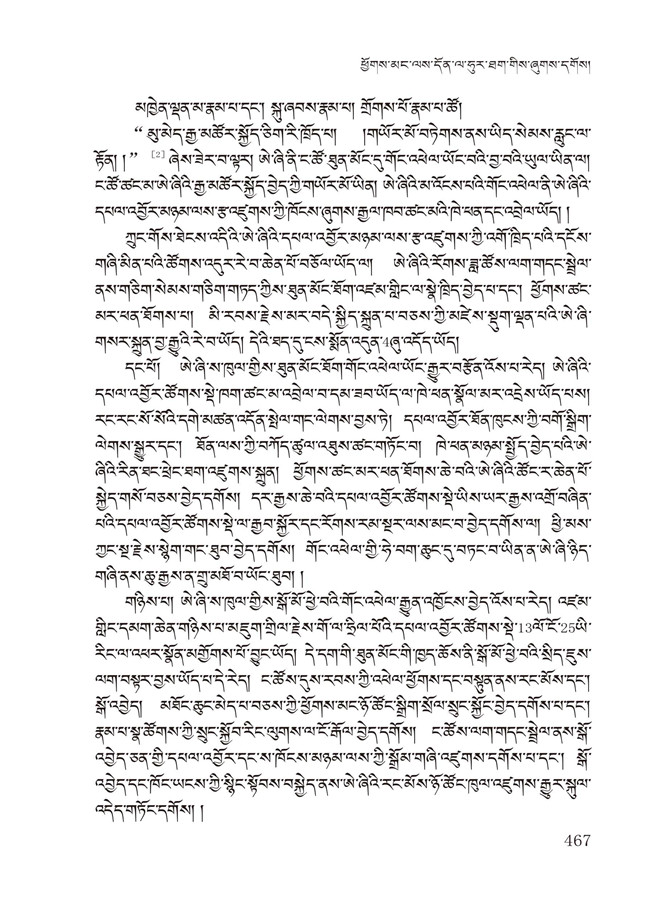 ཕྱོགས་མང་ལས་དོན་ལ་ཧུར་ཐག་གིས་ཞུགས་དགོས།
མཁྱེན་ལྡན་མ་རྣམ་པ་དང་། སྐུ་ཞབས་རྣམ་པ། གྲོགས་པོ་རྣམ་པ་ཚོ།
“ མུ་མེད་རྒྱ་མཚོར་སྐྱོད་ཅིག་རི་ཁྲོད་པ། །གཡོར་མོ་བཏེགས་ནས་ཡིད་སེམས་རླུང་ལ་
རྟོན། །” [2] ཞེས་ཟེར་བ་ལྟར། ཨེ་ཞི་ནི་ང་ཚོ་ཐུན་མོང་དུ་གོང་འཕེལ་ཡོང་བའི་བྱ་བའི་ཡུལ་ཡིན་ལ།
ང་ཚོ་ཚང་མ་ཨེ་ཞིའི་རྒྱ་མཚོར་སྐྱོད་བྱེད་ཀྱི་གཡོར་མོ་ཡིན། ཨེ་ཞིའི་མའོངས་པའི་གོང་འཕེལ་ནི་ཨེ་ཞིའི་
དཔལ་འབྱོར་མཉམ་ལས་རྩ་འཛུགས་ཀྱི་ཁོངས་ཞུགས་རྒྱལ་ཁབ་ཚང་མའི་ཁེ་ཕན་དང་འབྲེལ་ཡོད། །
ཀྲུང་གོས་ཐེངས་འདིའི་ཨེ་ཞིའི་དཔལ་འབྱོར་མཉམ་ལས་རྩ་འཛུགས་ཀྱི་འགོ་ཁྲིད་པའི་དངོས་
གཞི་མིན་པའི་ཚོགས་འདུར་རེ་བ་ཆེན་པོ་བཅོལ་ཡོད་ལ། ཨེ་ཞིའི་རོགས་ཟླ་ཚོས་ལག་གདང་སྦྲེལ་
ནས་གཅིག་སེམས་གཅིག་གཏད་ཀྱིས་ཐུན་མོང་ཐོག་འཛམ་གླིང་ལ་སྣེ་ཁྲིད་བྱེད་པ་དང་། ཕྱོགས་ཚང་
མར་ཕན་ཐོགས་པ། མི་རབས་རྗེས་མར་བདེ་སྐྱིད་སྐྲུན་པ་བཅས་ཀྱི་མཛེས་སྡུག་ལྡན་པའི་ཨེ་ཞི་
གསར་སྐྲུན་བྱ་རྒྱུའི་རེ་བ་ཡོད། དེའི་ཐད་དུ་ངས་སྨོན་འདུན་4ཞུ་འདོད་ཡོད།
དང་པོ། ཨེ་ཞི་ས་ཁུལ་གྱིས་ཐུན་མོང་ཐོག་གོང་འཕེལ་ཡོང་རྒྱུར་བརྩོན་དགོས་པ་རེད། ཨེ་ཞིའི་
དཔལ་འབྱོར་ཚོགས་སྡེ་ཁག་ཚང་མ་འབྲེལ་བ་དམ་ཟབ་ཡོད་ལ་ཁེ་ཕན་སྣོལ་མར་འདྲེས་ཡོད་པས།
རང་རང་སོ་སོའི་དགེ་མཚན་འདོན་སྤེལ་གང་ལེགས་བྱས་ཏེ། དཔལ་འབྱོར་ཐོན་ཁུངས་ཀྱི་བགོ་སྒྲིག་
ལེགས་སྒྱུར་དང་། ཐོན་ལས་ཀྱི་བཀོད་ཚུལ་འཐུས་ཚང་གཏོང་བ། ཁེ་ཕན་མཉམ་སྤྱོད་བྱེད་པའི་ཨེ་
ཞིའི་རིན་ཐང་ཕྲེང་ཐག་འཛུགས་སྐྲུན། ཕྱོགས་ཚང་མར་ཕན་ཐོགས་ཆེ་བའི་ཨེ་ཞིའི་ཚོང་ར་ཆེན་པོ་
སྐྱེད་གསོ་བཅས་བྱེད་དགོས། དར་རྒྱས་ཆེ་བའི་དཔལ་འབྱོར་ཚོགས་སྡེ་ཡིས་ཡར་རྒྱས་འགྲོ་བཞིན་
པའི་དཔལ་འབྱོར་ཚོགས་སྡེ་ལ་རྒྱབ་སྐྱོར་དང་རོགས་རམ་སྔར་ལས་མང་བ་བྱེད་དགོས་ལ། ཕྱི་མས་
ཀྱང་སྔ་རྗེས་སྙེག་གང་ཐུབ་བྱེད་དགོས། གོང་འཕེལ་གྱི་ཧེ་བག་ཆུང་དུ་བཏང་བ་ཡིན་ན་ཨེ་ཞི་ཉིད་
གཞི་ནས་ཆུ་རྒྱས་ན་གྲུ་མཐོ་བ་ཡོང་ཐུབ། །
གཉིས་པ། ཨེ་ཞི་ས་ཁུལ་གྱིས་སྒོ་མོ་ཕྱེ་བའི་གོང་འཕེལ་རྒྱུན་འཁྱོངས་བྱེད་དགོས་པ་རེད། འཛམ་
གླིང་དམག་ཆེན་གཉིས་པ་མཇུག་གྲིལ་རྗེས་གོ་ལ་ཧྲིལ་པོའི་དཔལ་འབྱོར་ཚོགས་སྡེ་13ལོ་ངོ་25ཡི་
རིང་ལ་འཕར་སྣོན་མགྱོགས་པོ་བྱུང་ཡོད། དེ་དག་གི་ཐུན་མོང་གི་ཁྱད་ཆོས་ནི་སྒོ་མོ་ཕྱེ་བའི་སྲིད་ཇུས་
ལག་བསྟར་བྱས་ཡོད་པ་དེ་རེད། ང་ཚོས་དུས་རབས་ཀྱི་འཕེལ་ཕྱོགས་དང་བསྟུན་ནས་རང་མོས་དང་།
སྒོ་འབྱེད། མཐོང་ཆུང་མེད་པ་བཅས་ཀྱི་ཕྱོགས་མང་ཉོ་ཚོང་སྒྲིག་སྲོལ་སྲུང་སྐྱོང་བྱེད་དགོས་པ་དང་།
རྣམ་པ་སྣ་ཚོགས་ཀྱི་སྲུང་སྐྱོབ་རིང་ལུགས་ལ་ངོ་རྒོལ་བྱེད་དགོས། ང་ཚོས་ལག་གདང་སྦྲེལ་ནས་སྒོ་
འབྱེད་ཅན་གྱི་དཔལ་འབྱོར་དང་ས་ཁོངས་མཉམ་ལས་ཀྱི་སྒྲོམ་གཞི་འཛུགས་དགོས་པ་དང་། སྒོ་
འབྱེད་དང་ཁོང་ཡངས་ཀྱི་སྙིང་སྟོབས་བསྐྱེད་ནས་ཨེ་ཞིའི་རང་མོས་ཉོ་ཚོང་ཁུལ་འཛུགས་རྒྱུར་སྐུལ་
འདེད་གཏོང་དགོས། །
467